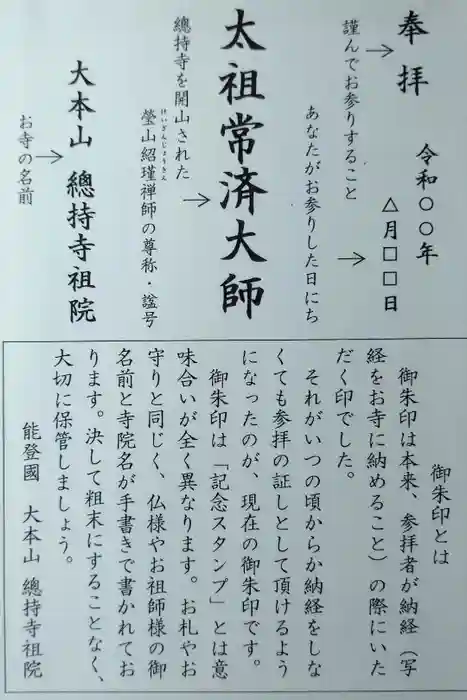 奉拝
謹んでお参りすること
令和○○年
△月□□日
あなたがお参りした日にち
太祖常済大師
總持寺を開山された
瑩山紹瑾禅師の尊称・諡号
けいざんじょうきん
大本山 總持寺祖院
お寺の名前
御朱印とは
御朱印は本来、参拝者が納経（写
経をお寺に納めること）の際にいた
だく印でした。
それがいつの頃からか納経をしな
くても参拝の証しとして頂けるよう
になったのが、現在の御朱印です。
御朱印は「記念スタンプ」とは意
味合いが全く異なります。お札やお
守りと同じく、仏様やお祖師様の御
名前と寺院名が手書きで書かれてお
ります。決して粗末にすることなく、
大切に保管しましょう。
能登國 大本山 總持寺祖院